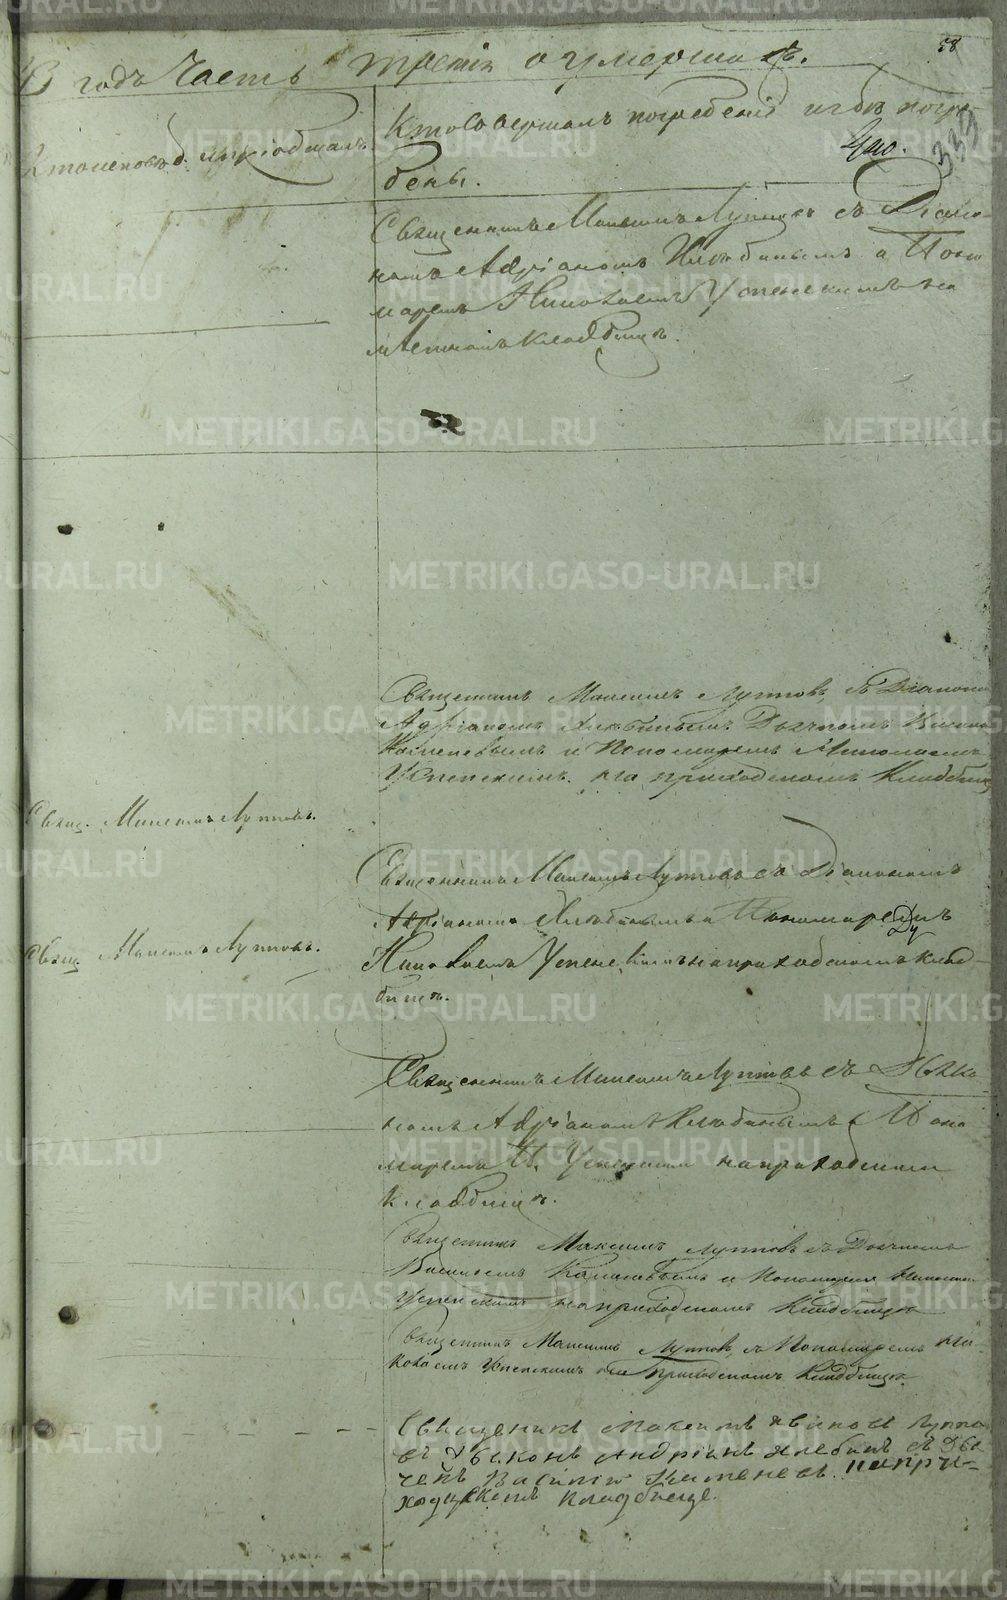 58
годъ Часть третія о умершихъ.
339
Кто исповѣд. и пріобщалъ
Кто Совершалъ погребеніе и гдѣ погре-
бены.
Священникъ Максимъ Луповъ съ Діако-
номъ Адріаномъ Хлѣбинымъ а Поно-
маремъ Николаемъ Успенскимъ на
мѣстномъ кладбищѣ.
Священникъ Максимъ Луповъ, съ Діакономъ
Адріаномъ Хлѣбинымъ Дьячкомъ
Каменевымъ и Пономаремъ Николаемъ
Успенскимъ на приходскомъ Кладбищѣ
Свящ. Максимъ Луповъ.
Священникъ Максимъ Луповъ съ Діакономъ
Адріаномъ Хлѣбинымъ и Пономаремъ
Николаемъ Успенскимъ на приходскомъ клад-
бищѣ.
Свящ. Максимъ Луповъ.
Священникъ Максимъ Луповъ съ Діако-
номъ Адріаномъ Хлѣбинымъ и Поно
маремъ Н. Успенскимъ на приходскомъ
кладбищѣ.
Священникъ Максимъ Луповъ съ Дьячкомъ
Василіемъ Каменевымъ и Пономаремъ Николаемъ
Успенскимъ на приходскомъ Кладбищѣ
Священникъ Максимъ Луповъ, съ Пономаремъ Ни-
колаемъ Успенскимъ на Приходскомъ Кладбищѣ
Священикъ Максимъ Ивановъ Луппо
въ дьяконъ Андріанъ Хлебинъ съ Дьа
чекъ Василій Каменевъ на при-
ходцскомъ кладбище.
METRIKI.GASO-URAL.RU